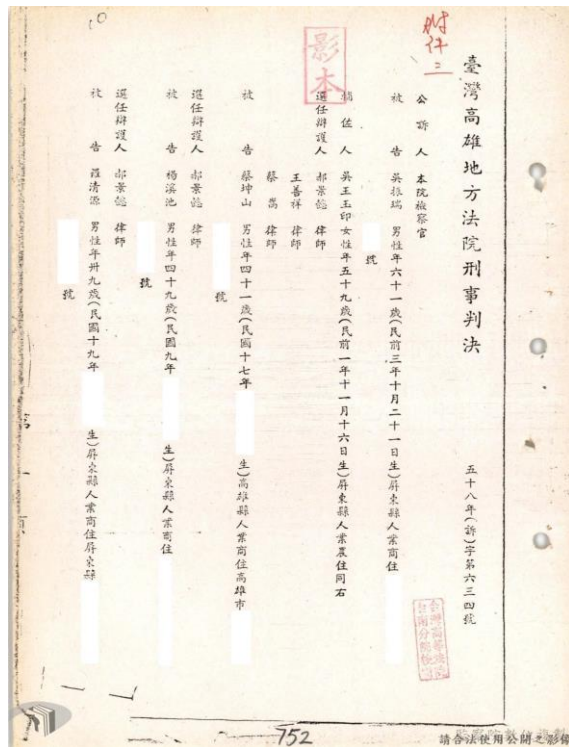 附件二
影本
臺灣高雄地方法院刑事判決　五十八年(訴)字第六三四號
公訴人　本院檢察官
被告　吳振瑞　男性年六十一歲(民前三年十月二十一日生)屏東縣人業商住
號
輔佐人　吳王玉印女性年五十九歲(民前一年十一月十六日生)屏東縣人業農住同右
選任辯護人　郝景懿　律師
王善祥　律師
蔡嵩　律師
被告　蔡坤山　男性年四十一歲(民國十七年　生)高雄縣人業商住高雄市
號
選任辯護人　郝景懿　律師
被告　楊溪池　男性年四十九歲(民國九年　生)屏東縣人業商住
號
選任辯護人　郝景懿　律師
被告　羅清源　男性年卅九歲(民國十九年　生)屏東縣人業商住屏東縣
號
752
請合法使用公開之影像